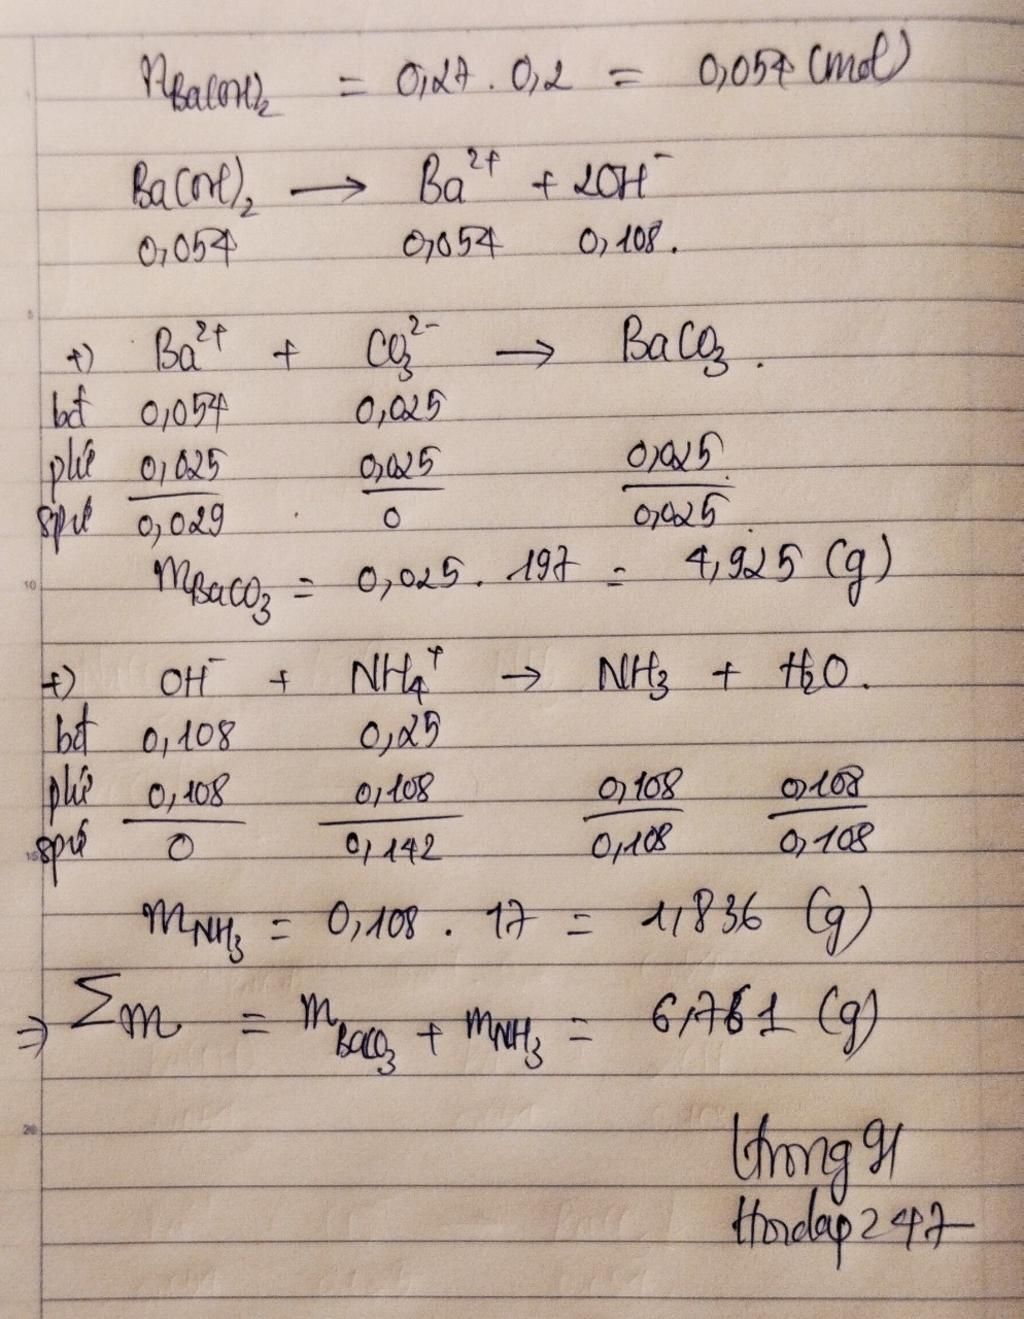 nBa(OH)2 = 0,27 . 0,2 = 0,054 (mol)
Ba(OH)2 → Ba2+ + 2OH-
0,054 0,054 0,108.
+) Ba2+ + CO32- → BaCO3.
bđ 0,054 0,025
pứ 0,025 0,025 0,025
spứ 0,029 0 0,025
mBaCO3 = 0,025. 197 = 4,925 (g)
+) OH- + NH4+ → NH3 + H2O.
bđ 0,108 0,25
pứ 0,108 0,108 0,108 0,108
spứ 0 0,142 0,108 0,108
mNH3 = 0,108 . 17 = 1,836 (g)
⇒ Σm = mBaCO3 + mNH3 = 6,761 (g)
247